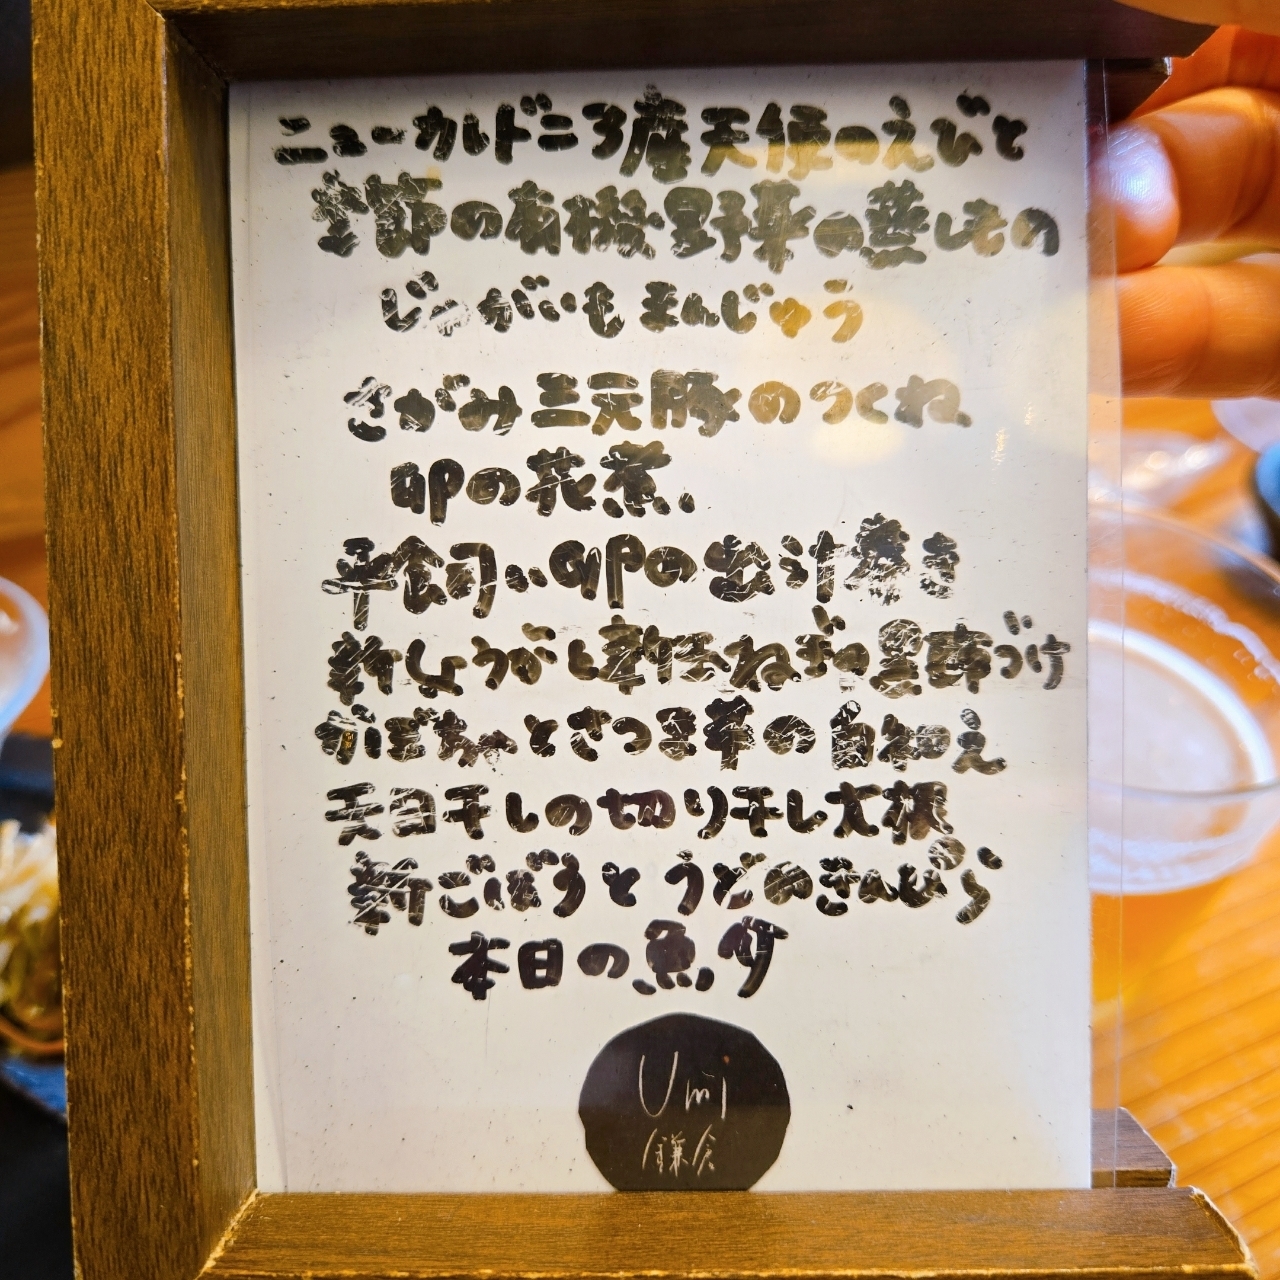 ニューカレドニア産天使のえびと
季節の有機野菜の蒸しもの
じゃがいもまんじゅう
さがみ三元豚のつくね
卯の花煮
平飼い卵の出汁巻き
新しょうがと新玉ねぎの黒酢づけ
かぼちゃとさつま芋の白和え
天日干しの切り干し大根
新ごぼうとうどのきんぴら
本日の魚
Umi
鎌倉